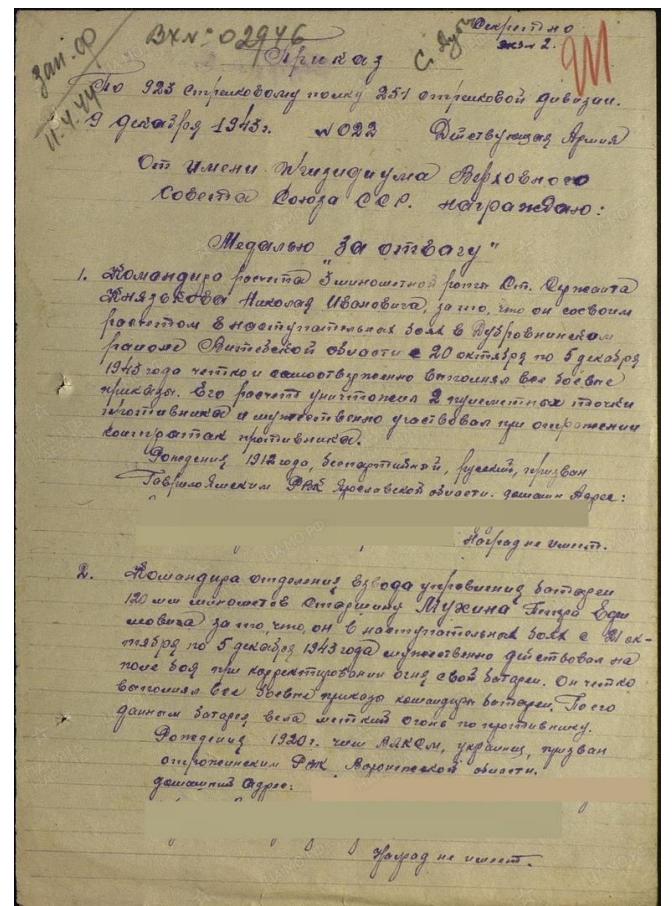 Вх № 02946
Секретно
экз 2.
зап. ф
11.4.44
Приказ
По 923 стрелковому полку 251 стрелковой дивизии.
9 декабря 1943 г. № 022 Действующая Армия
От имени Президиума Верховного
Совета Союза ССР. награждаю:
Медалью "За отвагу"
1. Командира расчета 3 минометной роты Ст. Сержанта
Князькова Николая Ивановича, за то, что он со своим
расчетом в наступательных боях в Дубровнинском
районе Витебской области с 20 октября по 5 декабря
1943 года четко и самоотверженно выполнял все боевые
приказы. Его расчет уничтожил 2 пулеметных точки
противника и мужественно участвовал при отражении
контратак противника.
Рождения 1912 года, беспартийный, русский, призван
Гаврилоямским РВК Ярославской области. домашн Адрес:
Наград не имеет.
2. Командира отделения взвода управления батареи
120 мм минометов Старшину Мухина Петра Ефи
мовича за то, что, он в наступательных боях с 21 ок-
тября по 5 декабря 1943 года мужественно действовал на
поле боя при корректировании огня свой батареи. Он четко
выполнял все боевые приказы командира батареи. По его
данным батарея вела меткий огонь по противнику.
Рождения 1920 г. член ВЛКСМ, украинец, призван
острожинским РВК Воронежской области.
домашний адрес:
Наград не имеет.